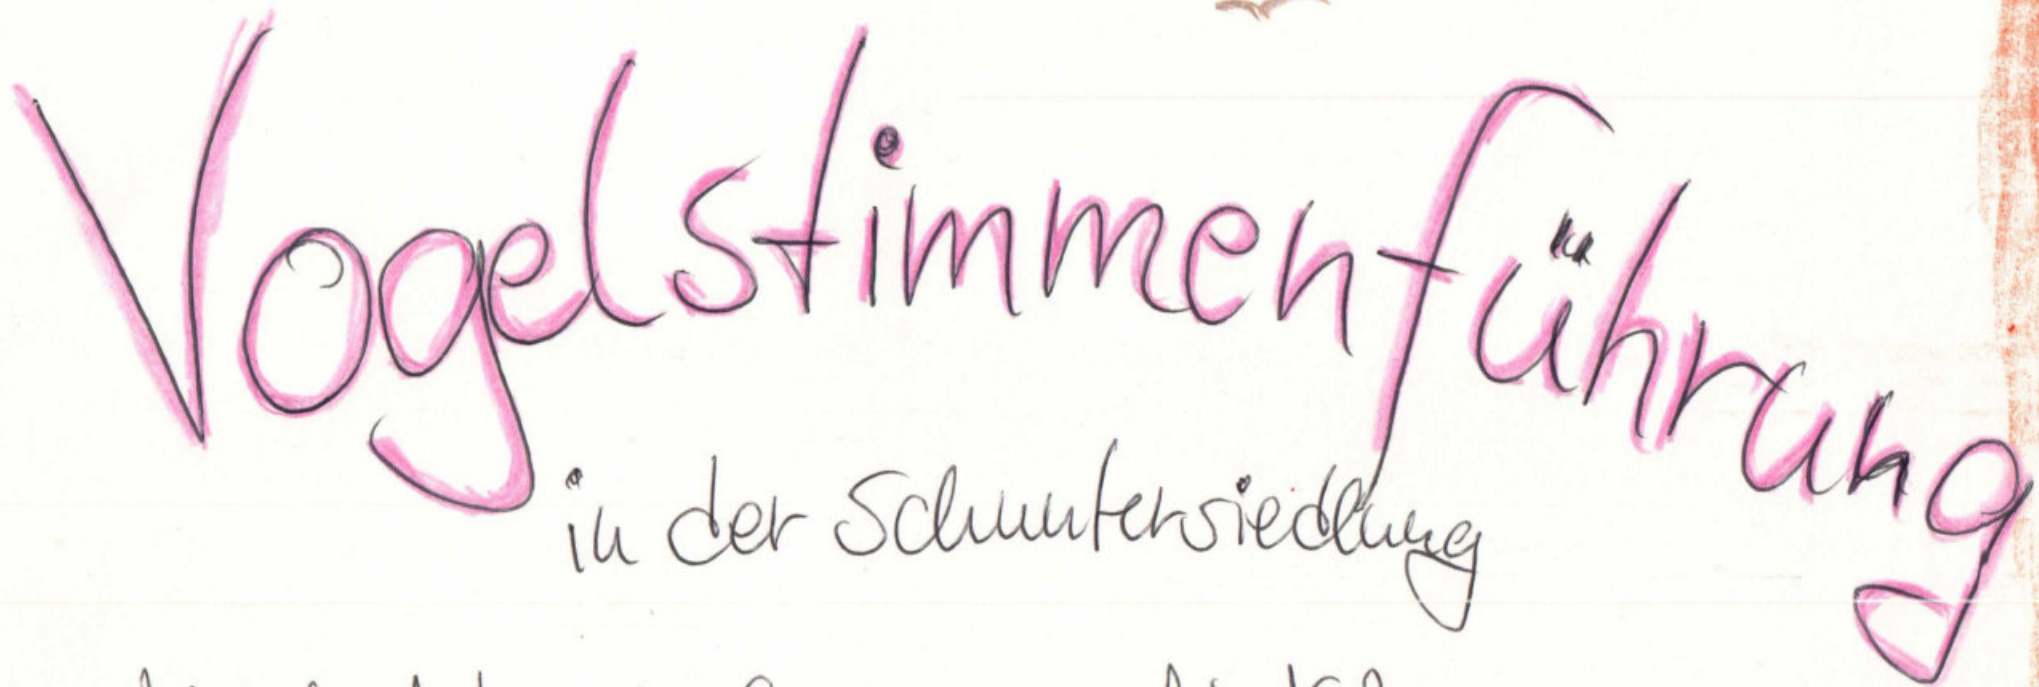 Vogelstimmenführung
in der Schuntersiedlung